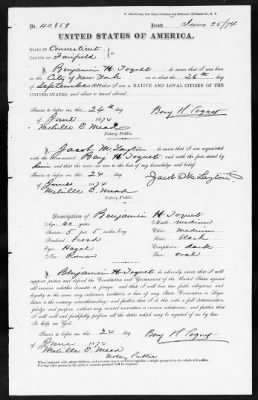 No. 40959 Issued June 25/74
UNITED STATES OF AMERICA.
STATE OF Connecticut
COUNTY OF Fairfield
I, Benjamin H. Toquet, do swear that I was born
in the City of New York on or about the 26th day
of September, that I am a NATIVE AND LOYAL CITIZEN OF THE
UNITED STATES, and about to travel abroad.
Sworn to before me, this 24th day
of June 1874
Melville E. Mead
Notary Public.
Benj H Toquet
I, Jacob M. Layton, do swear that I am acquainted
with the above-named Benj H. Toquet, and with the facts stated by
him, and that the same are true to the best of my knowledge and belief.
Sworn to before me, this 24 day
of June 1874
Melville E. Mead
Notary Public.
Jacob M. Layton
Description of Benjamin H Toquet
Age: Mouth: medium
Stature: 5 feet 5 inches Eng. Chin: medium
Forehead: broad Hair: black
Eyes: Hazel Complexion: dark
Nose: Roman Face: oval
I, Benjamin H Toquet, do solemnly swear that I will
support, protect and defend the Constitution and Government of the United States against
all enemies, whether domestic or foreign; and that I will bear true faith, allegiance and
loyalty to the same, any ordinance, resolution, or law of any State Convention or Legislature
to the contrary notwithstanding; and further, that I do this with a full determination,
pledge and purpose, without any mental reservation or evasion whatsoever; and further,
that I will well and faithfully perform all the duties which may be required of me by law.
So help me God.
Sworn to before me, this 24 day
of June 1874
Melville E. Mead
Notary Public
Benj H Toquet